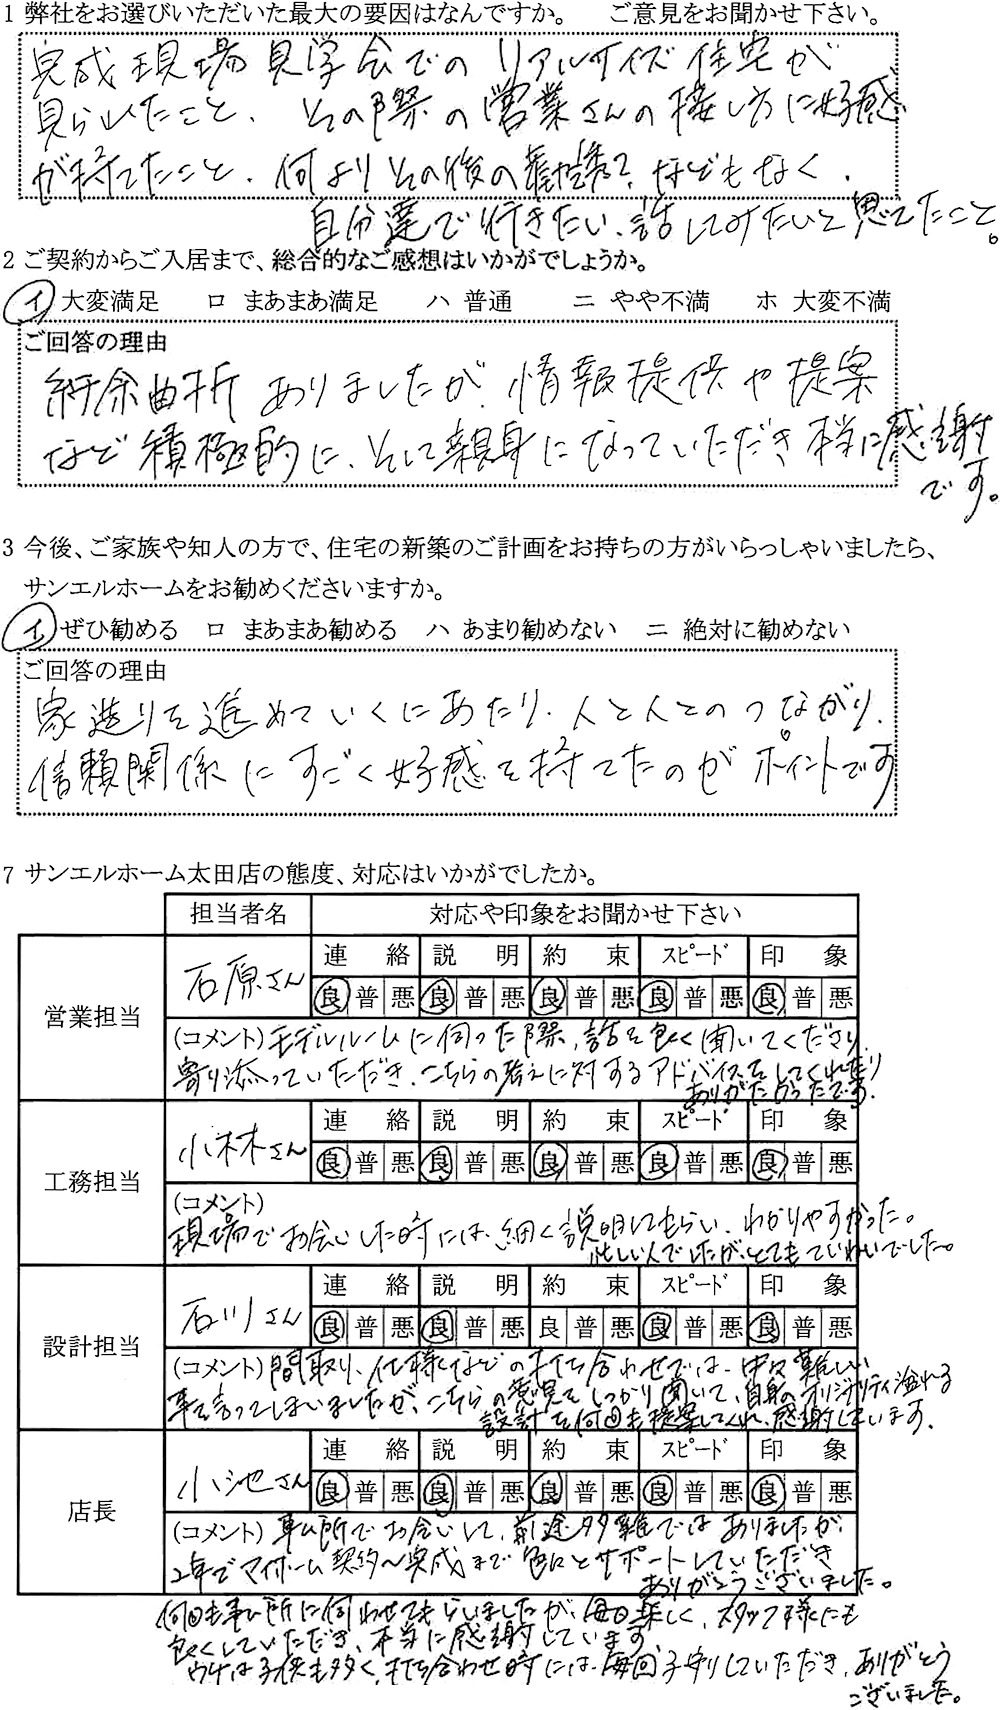 1 弊社をお選びいただいた最大の要因はなんですか。　ご意見をお聞かせ下さい。
完成現場見学会でのリアルサイズ住宅が
見られたこと、その際の営業さんの接し方に好感
が持てたこと、何よりその後の勧誘などもなく、
自分達で行きたい、話してみたいと思えたこと。
2 ご契約からご入居まで、総合的なご感想はいかがでしょうか。
イ 大変満足　ロ まあまあ満足　ハ 普通　ニ やや不満　ホ 大変不満
ご回答の理由
紆余曲折ありましたが、情報提供や提案
など積極的に、そして親身になっていただき本当に感謝
です。
3 今後、ご家族や知人の方で、住宅の新築のご計画をお持ちの方がいらっしゃいましたら、
サンエルホームをお勧めくださいますか。
イ ぜひ勧める　ロ まあまあ勧める　ハ あまり勧めない　ニ 絶対に勧めない
ご回答の理由
家造りを進めていくにあたり、人と人とのつながり、
信頼関係にすごく好感を持てたのがポイントです
7 サンエルホーム太田店の態度、対応はいかがでしたか。
担当者名　対応や印象をお聞かせ下さい
営業担当　石原さん　連絡　説明　約束　スピード　印象
良 普 悪　良 普 悪　良 普 悪　良 普 悪　良 普 悪
(コメント) モデルルームに伺った際、話を良く聞いてくださり、
寄り添っていただき、こちらの考えに対するアドバイスをしてくれたり
ありがたかったです。
工務担当　小林さん　連絡　説明　約束　スピード　印象
良 普 悪　良 普 悪　良 普 悪　良 普 悪　良 普 悪
(コメント)
現場でお会いした時には、細く説明してもらい、わかりやすかった。
忙しい人でしたが、とてもていねいでした。
設計担当　石川さん　連絡　説明　約束　スピード　印象
良 普 悪　良 普 悪　良 普 悪　良 普 悪　良 普 悪
(コメント) 間取り、仕様などの打ち合わせでは、中々難しい
事を言ってしまいましたが、こちらの意見をしっかり聞いて、自身のオリジナリティ溢れる
設計を何回も提案してくれ、感謝しています。
店長　小池さん　連絡　説明　約束　スピード　印象
良 普 悪　良 普 悪　良 普 悪　良 普 悪　良 普 悪
(コメント) 事ム所でお会いして、前途多難ではありましたが、
2年でマイホーム契約～完成まで色々とサポートしていただき
ありがとうございました。
何回も事ム所に伺わせてもらいましたが、毎回楽しく、スタッフ様にも
良くしていただき、本当に感謝しています。
ウチは子供も多く、打ち合わせ時には、毎回子守りしていただき、ありがとう
ございました。